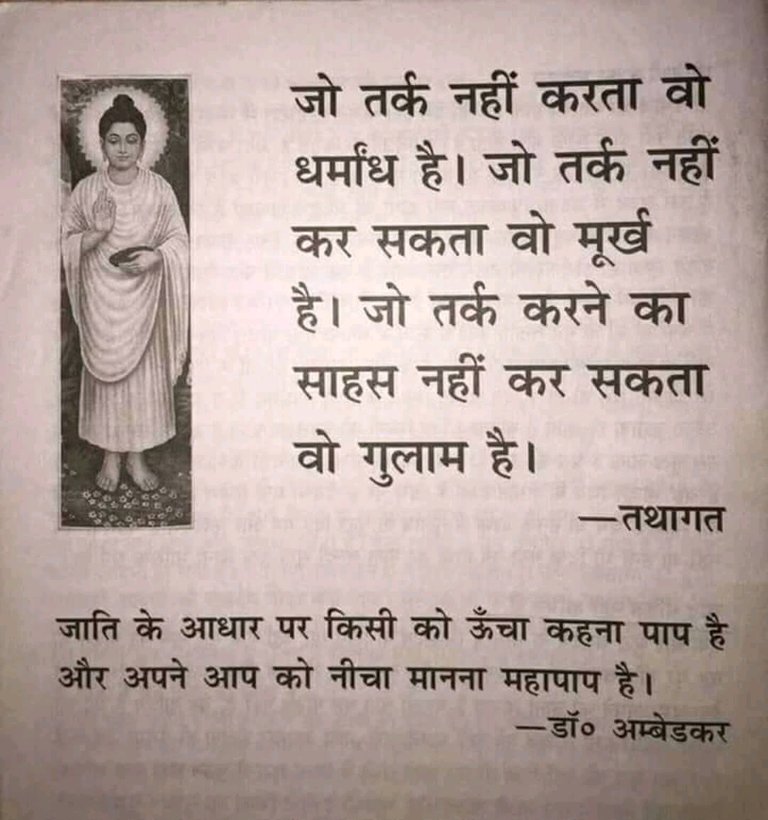 जो तर्क नहीं करता वो
धर्मांध है। जो तर्क नहीं
कर सकता वो मूर्ख
है। जो तर्क करने का
साहस नहीं कर सकता
वो गुलाम है।
—तथागत
जाति के आधार पर किसी को ऊँचा कहना पाप है
और अपने आप को नीचा मानना महापाप है।
—डॉ० अम्बेडकर